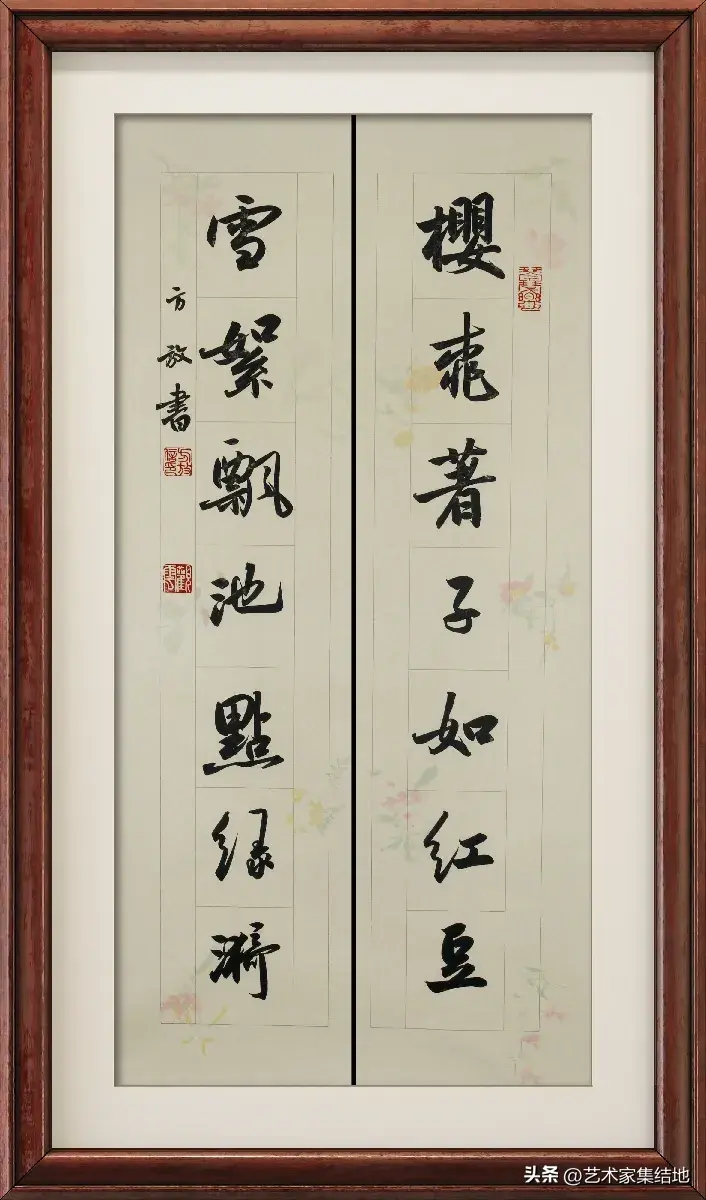 櫻桃著子如红豆
雪絮飄池點绿漪
方放書
头条 @艺术家集结地